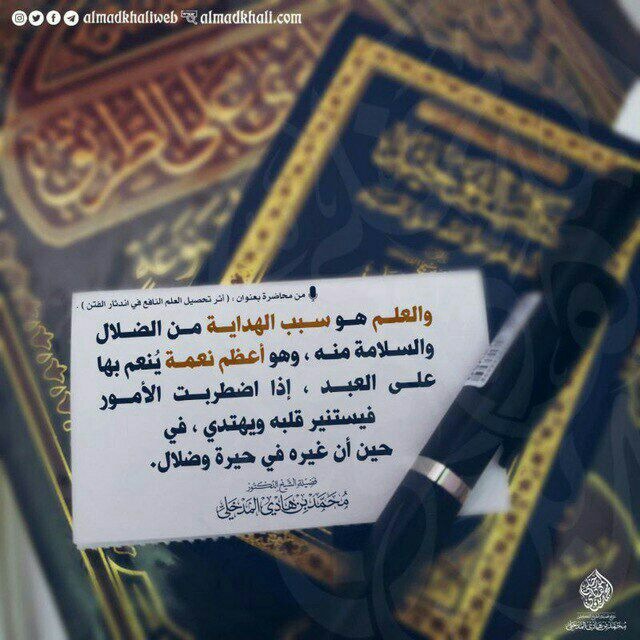 almadkhaliweb almadkhali.com
على الطريق
من محاضرة بعنوان : ( أثر تحصيل العلم النافع في اندثار الفتن ) .
والعلم هو سبب الهداية من الضلال
والسلامة منه ، وهو أعظم نعمة يُنعم بها
على العبد ، إذا اضطربت الأمور
فيستنير قلبه ويهتدي ، في
حين أن غيره في حيرة وضلال.
فضيلة الشيخ الدكتور
محمد بن هادي المدخلي
محمد بن هادي المدخلي